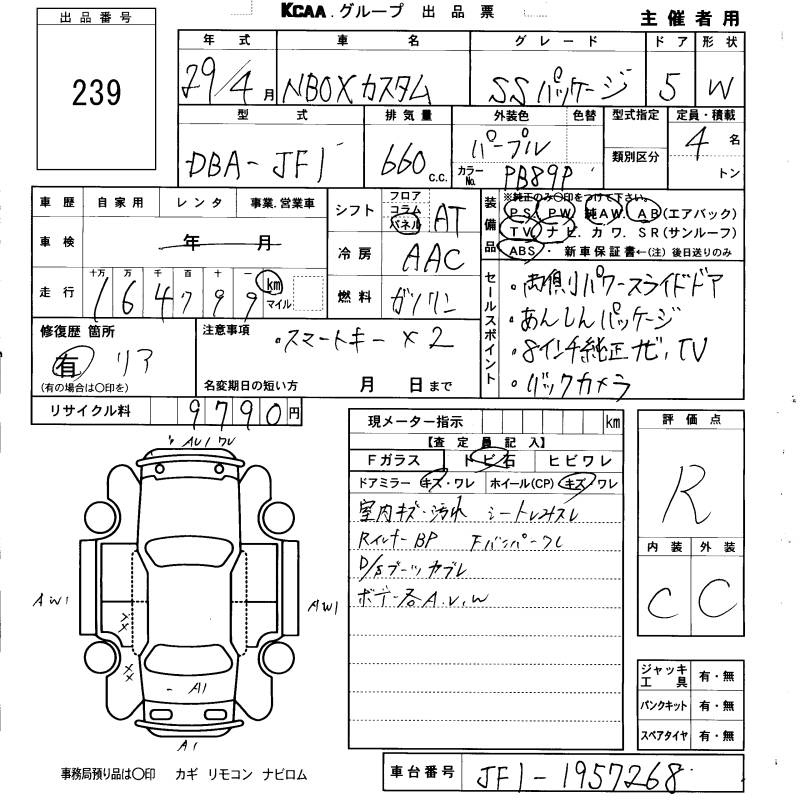 KCAA.グループ 出品票
主催者用
出品番号
239
年式 車名 グレード ドア 形状
29/4月 NBOXカスタム SSパッケージ 5 W
型式 排気量 外装色 色替 型式指定 定員・積載
DBA-JF1 660 c.c. パープル 類別区分 4名
カラーNo. PB89P トン
車歴 自家用 レンタ 事業.営業車
車検 年 月
走行 十万 万 千 百 十 一
164799 km マイル
シフト フロア コラム パネル AT
冷房 AAC
燃料 ガソリン
装備品 ※純正のみ〇印をつけて下さい。
PS. PW. 純AW. AB(エアバック)
TV. ナビ. カワ. SR(サンルーフ)
ABS・ 新車保証書←(注)後日送りのみ
セールスポイント
・両側パワースライドドア
・あんしんパッケージ
・8インチ純正ナビ、TV
・バックカメラ
修復歴 箇所
有 リア
(有の場合は〇印を)
注意事項
・スマートキー×2
名変期日の短い方 月 日まで
リサイクル料 9790円
現メーター指示 km
【査定員記入】
Fガラス トビ石 ヒビワレ
ドアミラー キズ・ワレ ホイール(CP) キズ ワレ
室内キズ・汚れ シートレスレ
Rインナー BP Fバンパーワレ
D/Sブーツカブレ
ボデー各A.U.W
評価点
R
内装 外装
C C
AU1
AW1
AW1
XX
XX
A1
A1
ジャッキ工具 有・無
パンクキット 有・無
スペアタイヤ 有・無
事務局預り品は〇印 カギ リモコン ナビロム
車台番号 JF1-1957268